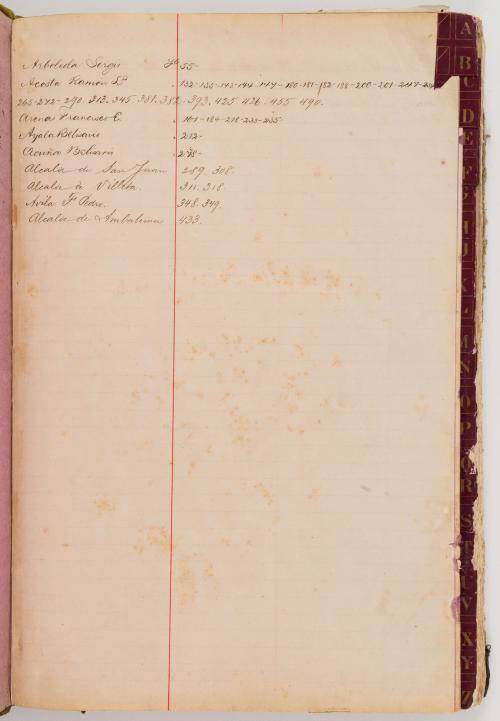 Arboleda Sergio Fo 55-
Acosta Ramón Dr. 132-135-143-144-147-180-181-182-188-200-201-247-
265-272-290. 313. 345. 351. 382. 393. 425. 426. 455. 490.
Arenas Francisco E. 161-184-218-235-255-
Ayala Belisario 212-
Acuña Belisario 278-
Alcalde de San Juan 289. 308.
Alcalde de Villeta. 311. 318.
Avila F. Pedro. 348. 349.
Alcalde de Ambalema 433.
A
B
C
D
E
F
G
H
IJ
K
L
M
N
O
P
Q
R
S
T
U
V
X
Y
Z